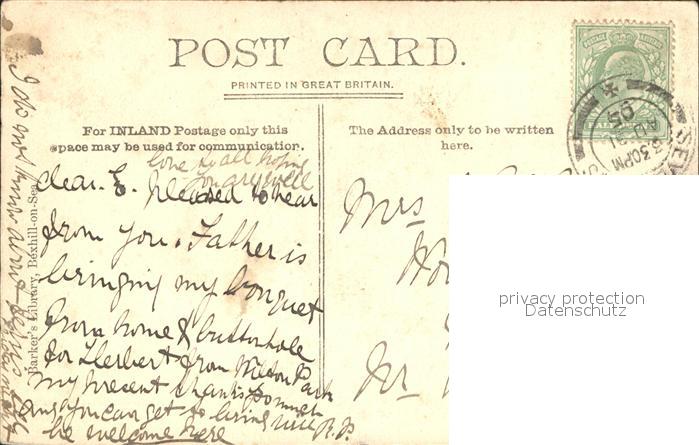 POST CARD.
PRINTED IN GREAT BRITAIN.
For INLAND Postage only this
space may be used for communication.
The Address only to be written
here.
love to all hoping
you are well
dear. E. pleased to hear
from you. Father is
bringing my bouquet
from home & buttonhole
for Herbert from Wilton Park
my present thanks so much
you can get to bring will
be welcome here R.P.
I do not know about
Barker's Library, Bexhill-on-Sea
Mrs
Nr
30PM
AU 21
05
privacy protection
Datenschutz